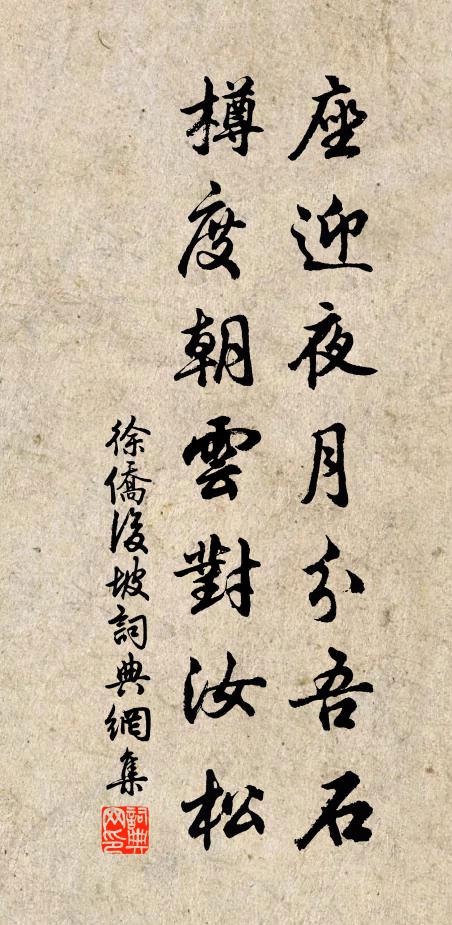 座迎夜月分吾石
樽度朝雲對汝松
徐僑後坡詞典網集
詞典網印